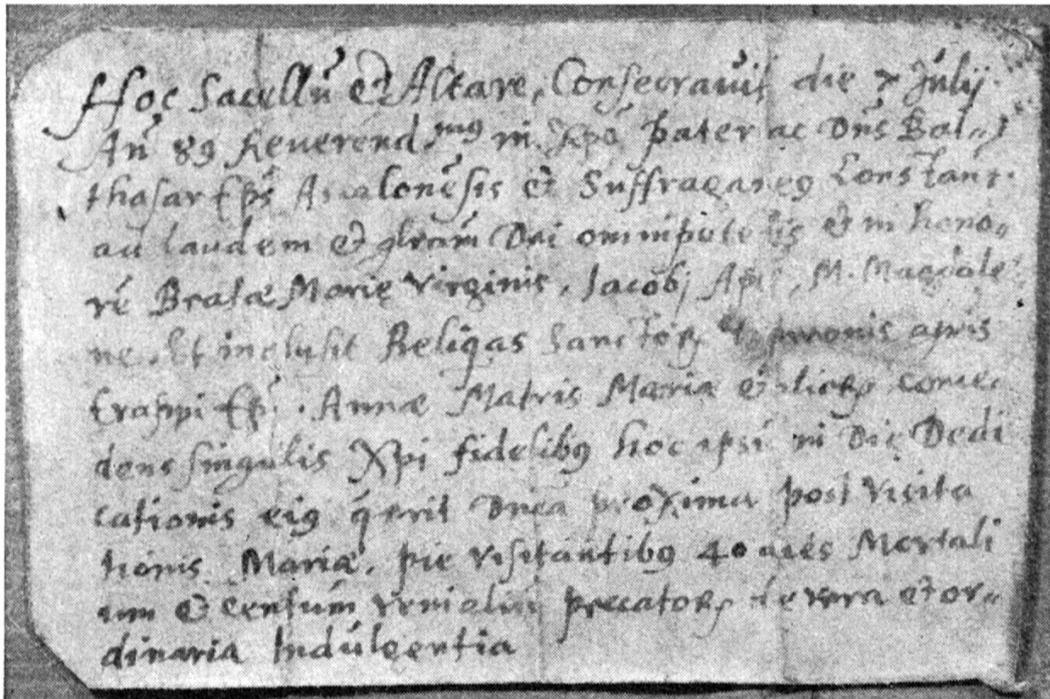 Hoc Sacellũ et Altare, Consecravit die 7 Julij
Añ 89 Reverend.mus in Xpõ pater ac Dñs Bal=
thasar Eps̃ Ascalonẽsis et Suffraganeg Constant.
ad laudem et glr̃am Dei omnipotẽtis et in hono=
rẽ Beatæ Marię Virginis, Jacobj Apli, M. Magdale
ne. Et inclusit Reliqas Sanctorꝝ
Epĩ. Annæ Matris Mariæ et alioꝝ conce,
dens singulis Xpi fidelibꝯ hoc ipsũ in Die Dedi
cationis eiꝯ q̃ erit Dnĩca proxima post Visita
tionis Mariæ, pie visitantibꝯ 40 dies Mortali
um et Centum venialiũ peccatorꝝ de vera et or=
dinaria Indulgentia